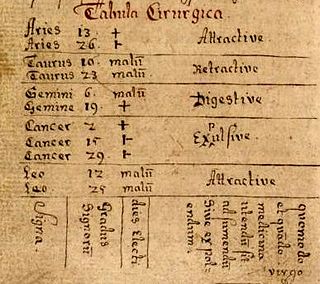 Tabula Cirurgica.
Aries 13 +
Aries 26 + Attractive.
Taurus 10 malū
Taurus 23 malū Retractive
Gemini 6 malū
Gemine 19 + Digestive
Cancer 2 +
Cancer 15 + Expulsive.
Cancer 29 +
Leo 12 malū
Leo 25 malū Attractive
Signa.
Gradus
Signorū
dies Electi
quomodo
et quādo
medicina
utendū sit
ad
Sive
endum.
virgo